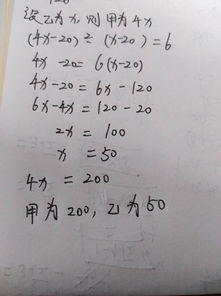 设乙为x, 则甲为4x
(4x-20)÷(x-20)=6
4x-20=6(x-20)
4x-20=6x-120
6x-4x=120-20
2x=100
x=50
4x=200
甲为200,乙为50